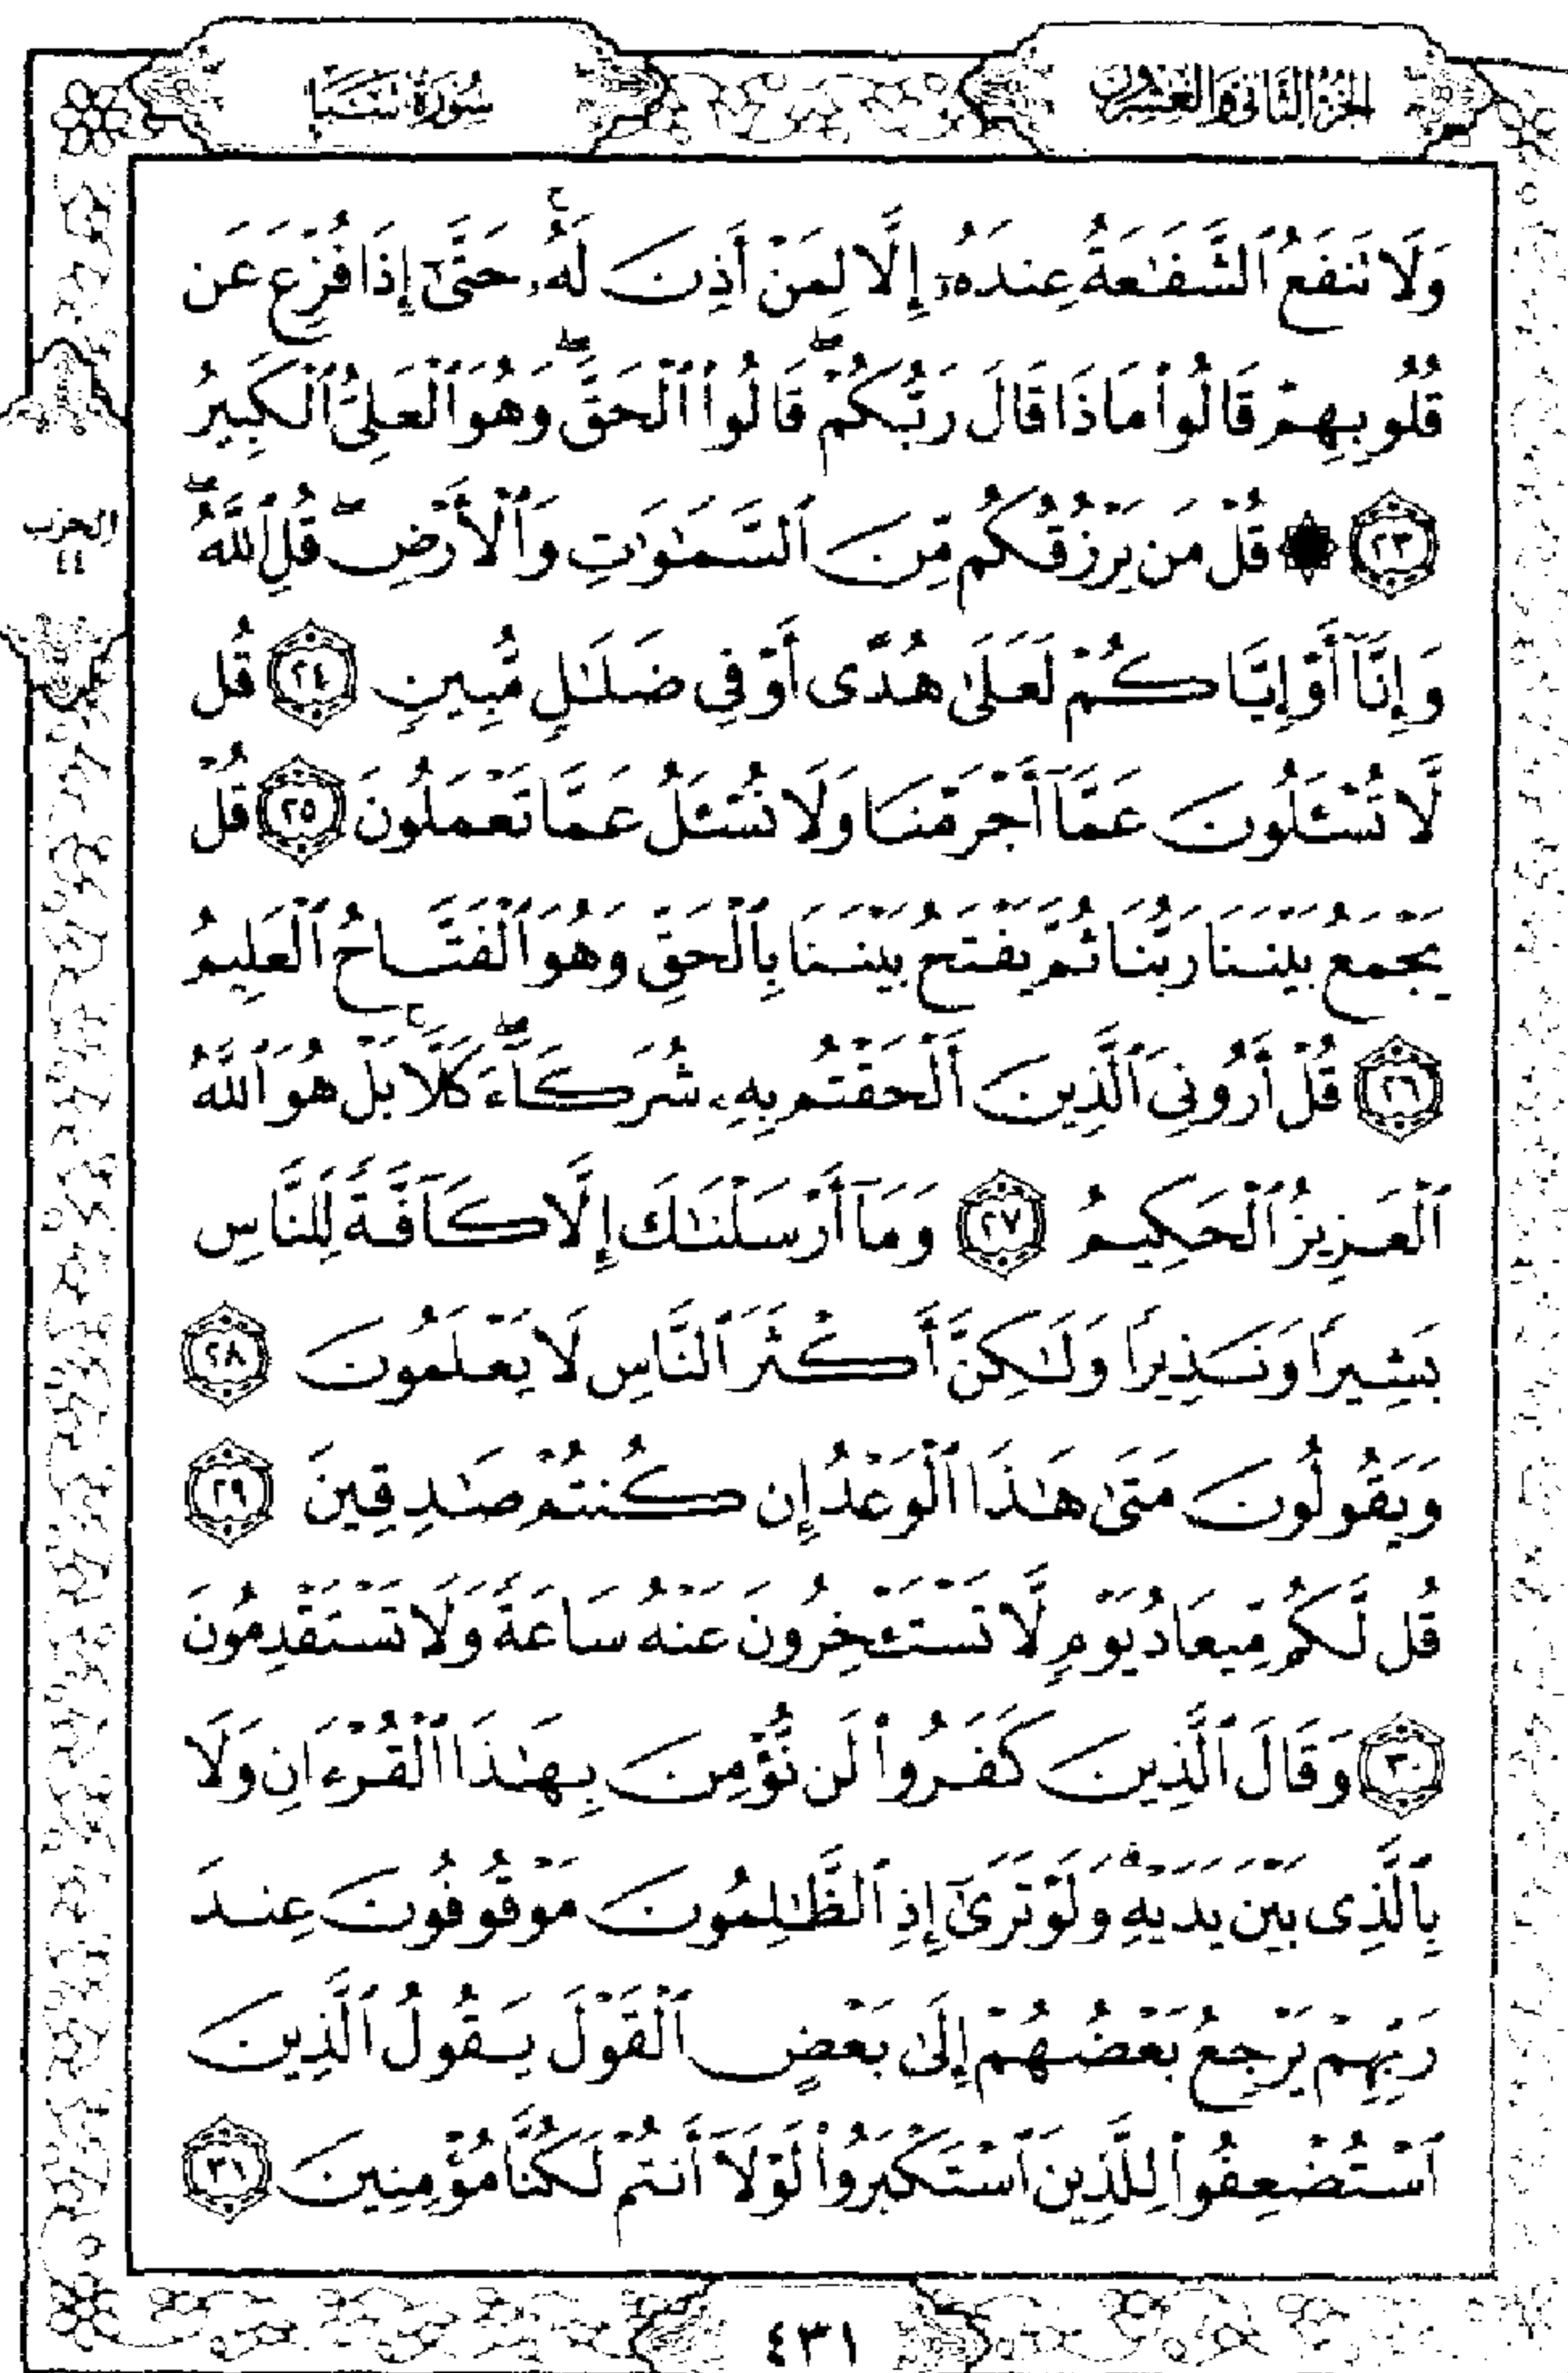 الجزء الثاني والعشرون
سورة سبأ
وَلَا تَنفَعُ ٱلشَّفَٰعَةُ عِندَهُۥٓ إِلَّا لِمَنْ أَذِنَ لَهُۥۚ حَتَّىٰٓ إِذَا فُزِّعَ عَن
قُلُوبِهِمْ قَالُوا۟ مَاذَا قَالَ رَبُّكُمْۖ قَالُوا۟ ٱلْحَقَّۖ وَهُوَ ٱلْعَلِىُّ ٱلْكَبِيرُ
٢٣ ۞ قُلْ مَن يَرْزُقُكُم مِّنَ ٱلسَّمَٰوَٰتِ وَٱلْأَرْضِۖ قُلِ ٱللَّهُۖ
وَإِنَّآ أَوْ إِيَّاكُمْ لَعَلَىٰ هُدًى أَوْ فِى ضَلَٰلٍ مُّبِينٍ ٢٤ قُل
لَّا تُسْـَٔلُونَ عَمَّآ أَجْرَمْنَا وَلَا نُسْـَٔلُ عَمَّا تَعْمَلُونَ ٢٥ قُلْ
يَجْمَعُ بَيْنَنَا رَبُّنَا ثُمَّ يَفْتَحُ بَيْنَنَا بِٱلْحَقِّ وَهُوَ ٱلْفَتَّاحُ ٱلْعَلِيمُ
٢٦ قُلْ أَرُونِىَ ٱلَّذِينَ أَلْحَقْتُم بِهِۦ شُرَكَآءَۖ كَلَّاۚ بَلْ هُوَ ٱللَّهُ
ٱلْعَزِيزُ ٱلْحَكِيمُ ٢٧ وَمَآ أَرْسَلْنَٰكَ إِلَّا كَآفَّةً لِّلنَّاسِ
بَشِيرًا وَنَذِيرًا وَلَٰكِنَّ أَكْثَرَ ٱلنَّاسِ لَا يَعْلَمُونَ ٢٨
وَيَقُولُونَ مَتَىٰ هَٰذَا ٱلْوَعْدُ إِن كُنتُمْ صَٰدِقِينَ ٢٩
قُل لَّكُم مِّيعَادُ يَوْمٍ لَّا تَسْتَـْٔخِرُونَ عَنْهُ سَاعَةً وَلَا تَسْتَقْدِمُونَ
٣٠ وَقَالَ ٱلَّذِينَ كَفَرُوا۟ لَن نُّؤْمِنَ بِهَٰذَا ٱلْقُرْءَانِ وَلَا
بِٱلَّذِى بَيْنَ يَدَيْهِۗ وَلَوْ تَرَىٰٓ إِذِ ٱلظَّٰلِمُونَ مَوْقُوفُونَ عِندَ
رَبِّهِمْ يَرْجِعُ بَعْضُهُمْ إِلَىٰ بَعْضٍ ٱلْقَوْلَ يَقُولُ ٱلَّذِينَ
ٱسْتُضْعِفُوا۟ لِلَّذِينَ ٱسْتَكْبَرُوا۟ لَوْلَآ أَنتُمْ لَكُنَّا مُؤْمِنِينَ ٣١
الحزب
٤٤
٤٣١